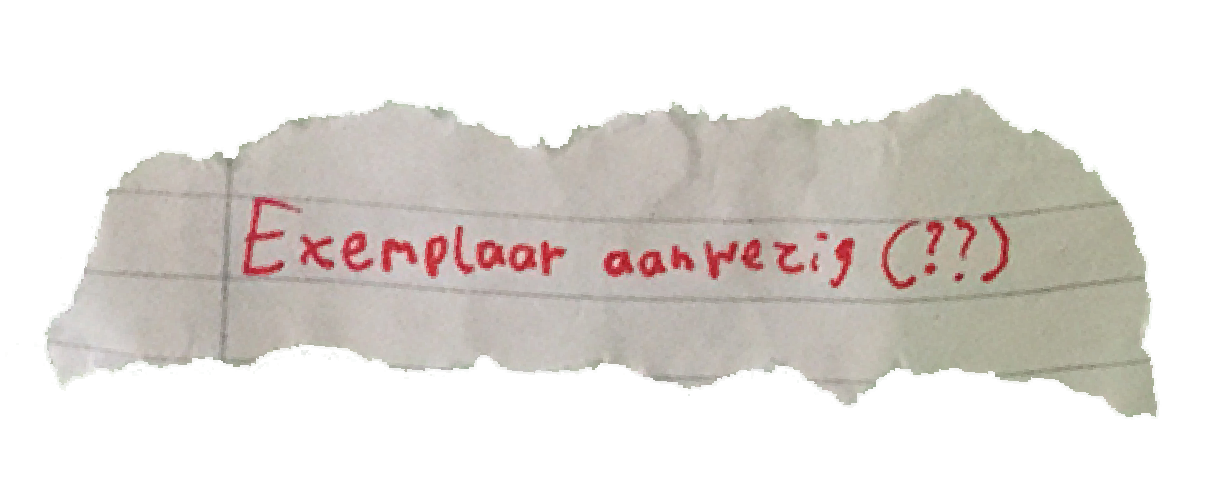 Exemplaar aanwezig (??)